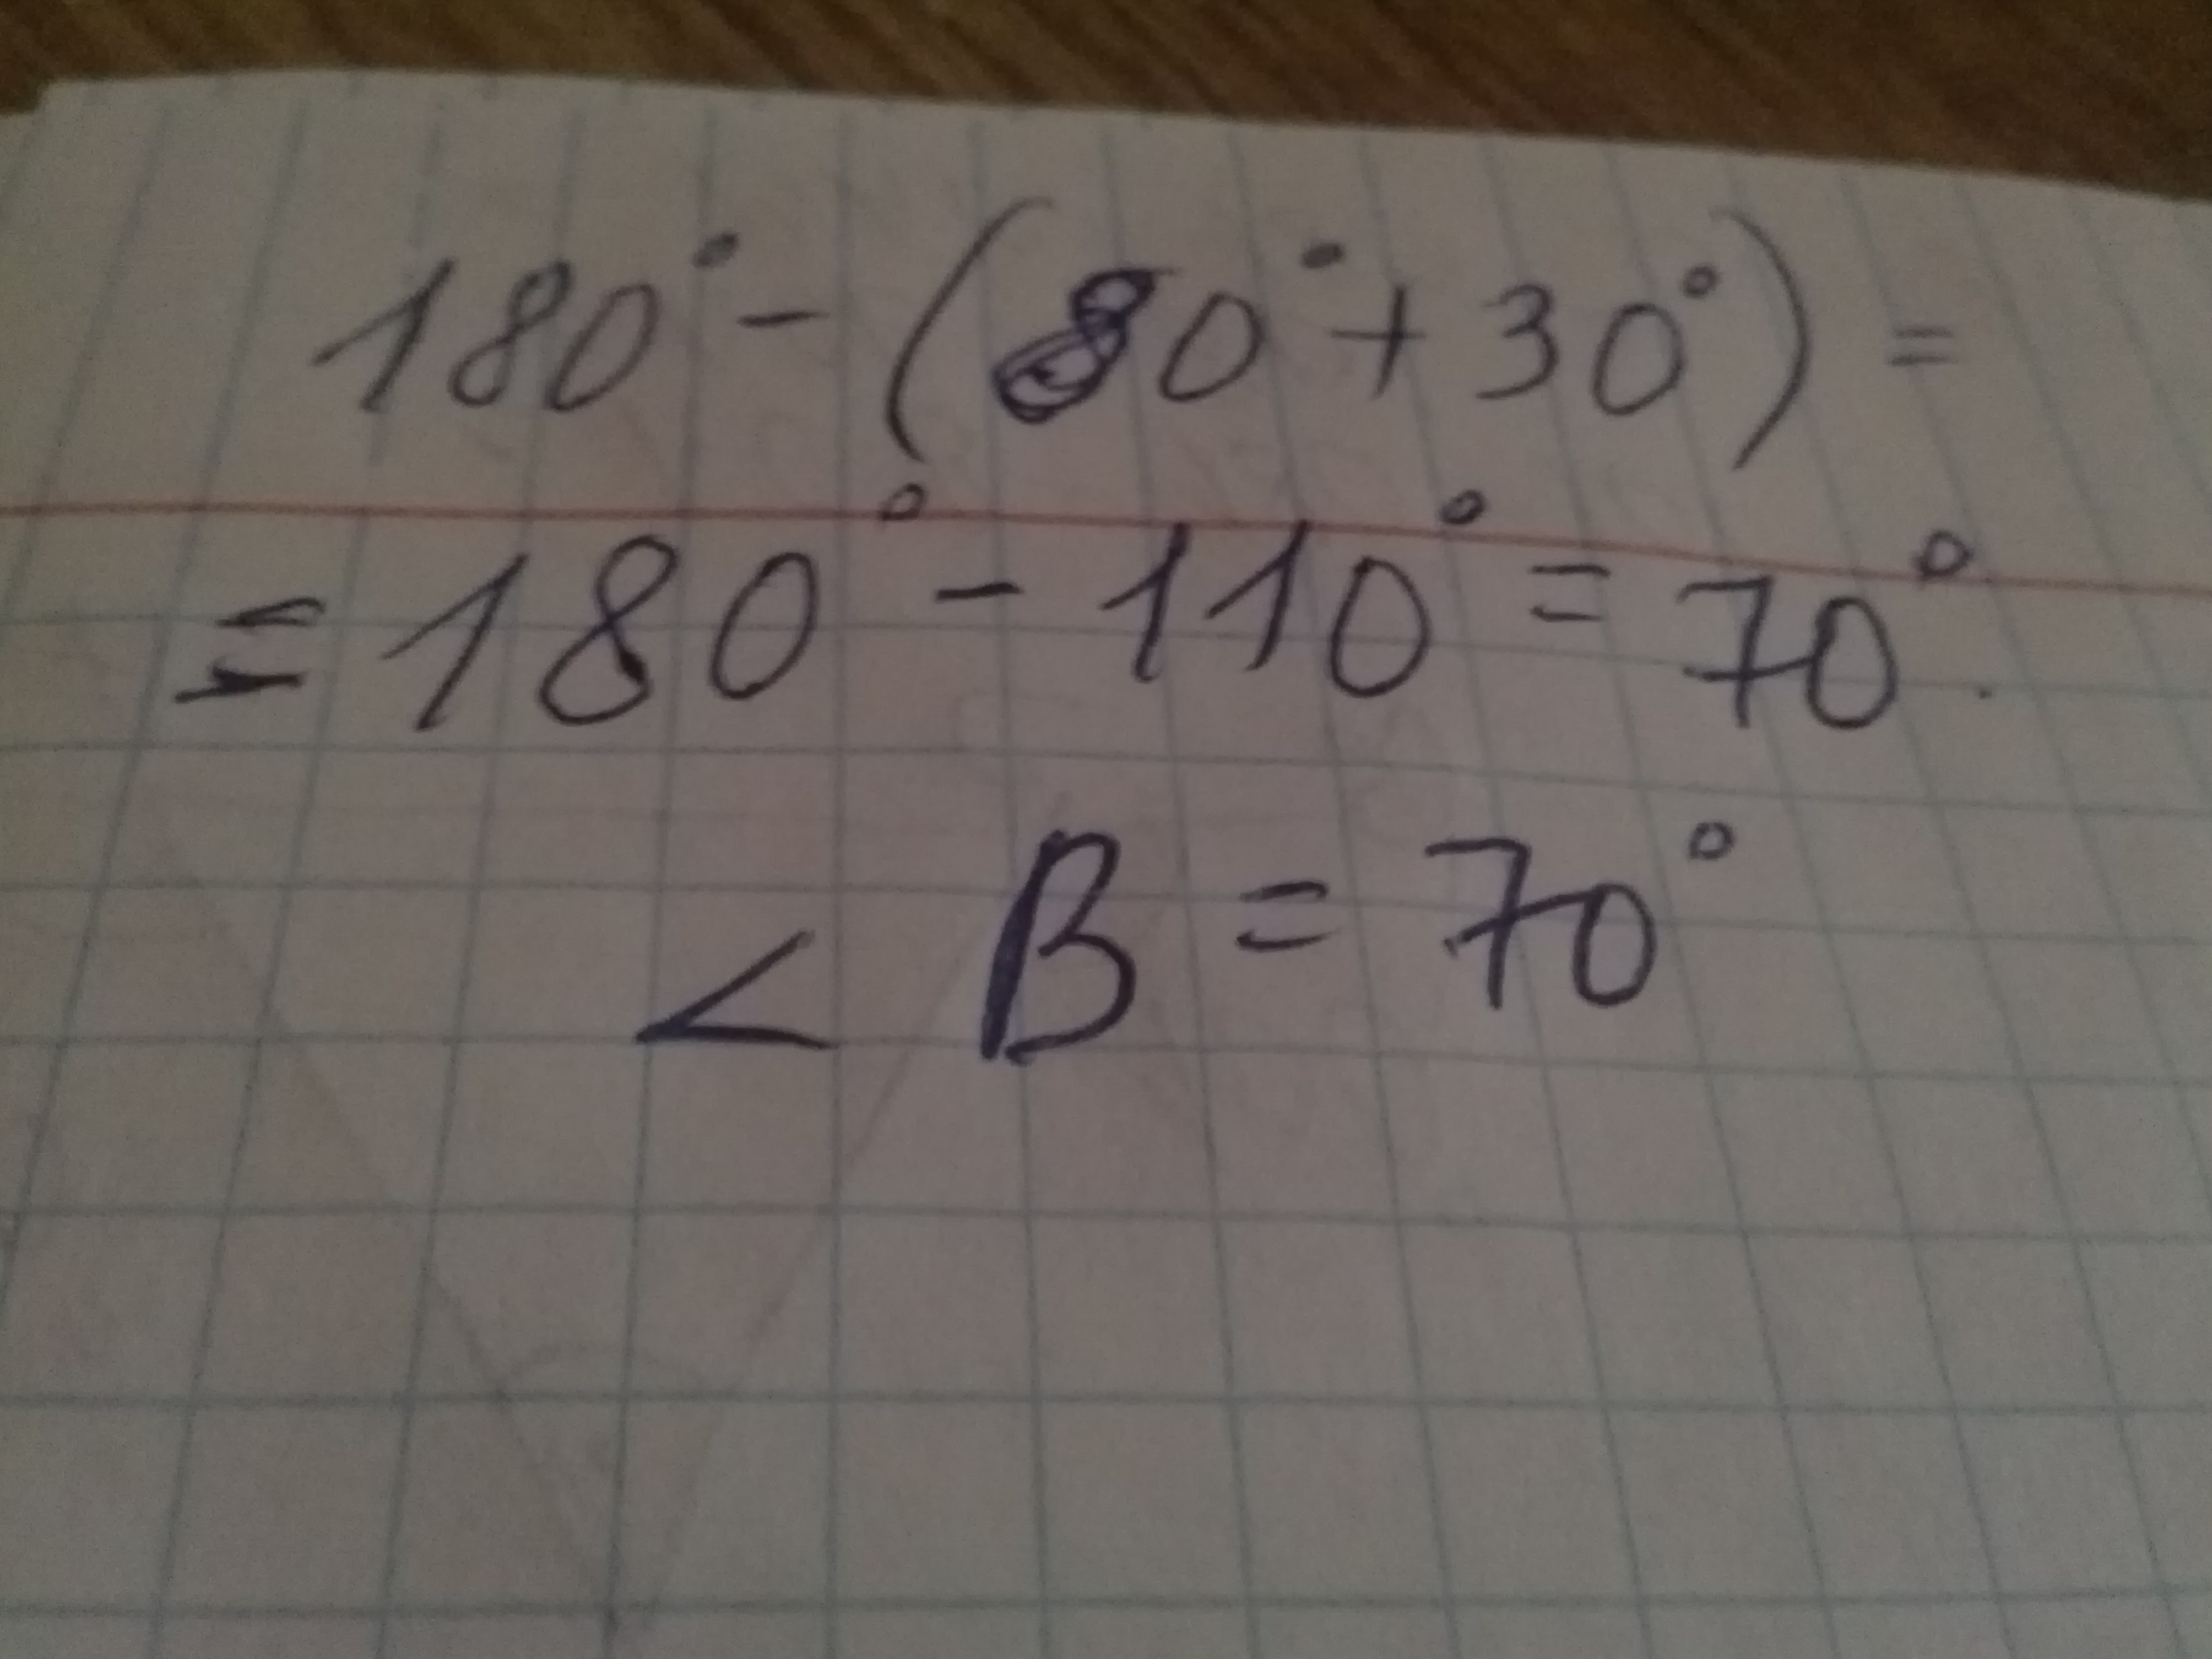 180° - (80° + 30°) =
= 180° - 110° = 70°.
< B = 70°